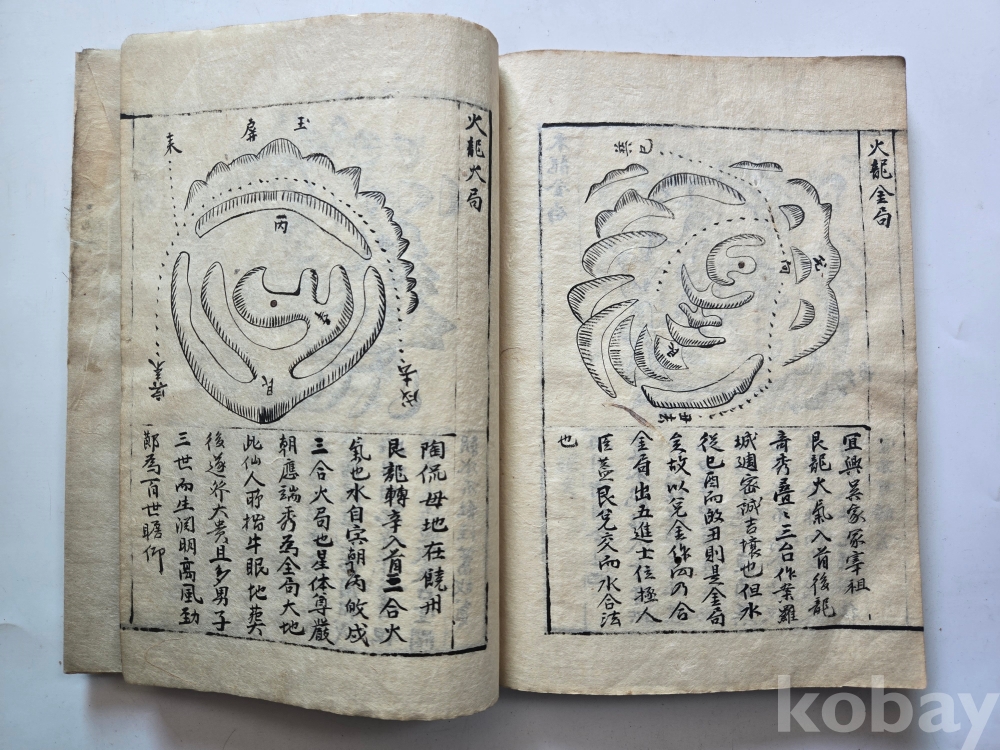 火龍金局
巳
兌
丙
艮
宜興吳家冢宰祖
艮龍火氣入首後龍
奇秀疊〻三台作案羅
城週密誠吉壤也但水
從巳酉而敀丑則是金局
矣故以兌金作丙乃合
金局出五進士位極人
臣蓋艮兌交而水合法
也
火龍火局
玉屏
未
丙
辛
艮
戌去
寅来
陶侃母地在饒州
艮龍轉辛入首三合火
氣也水自寅朝而敀戌
三合火局也星体尊嚴
朝應端秀為全局大地
此仙人所指牛眠地葬
後遂大貴且多男子
三世而生渕明高風勁
節為百世瞻仰
kobay